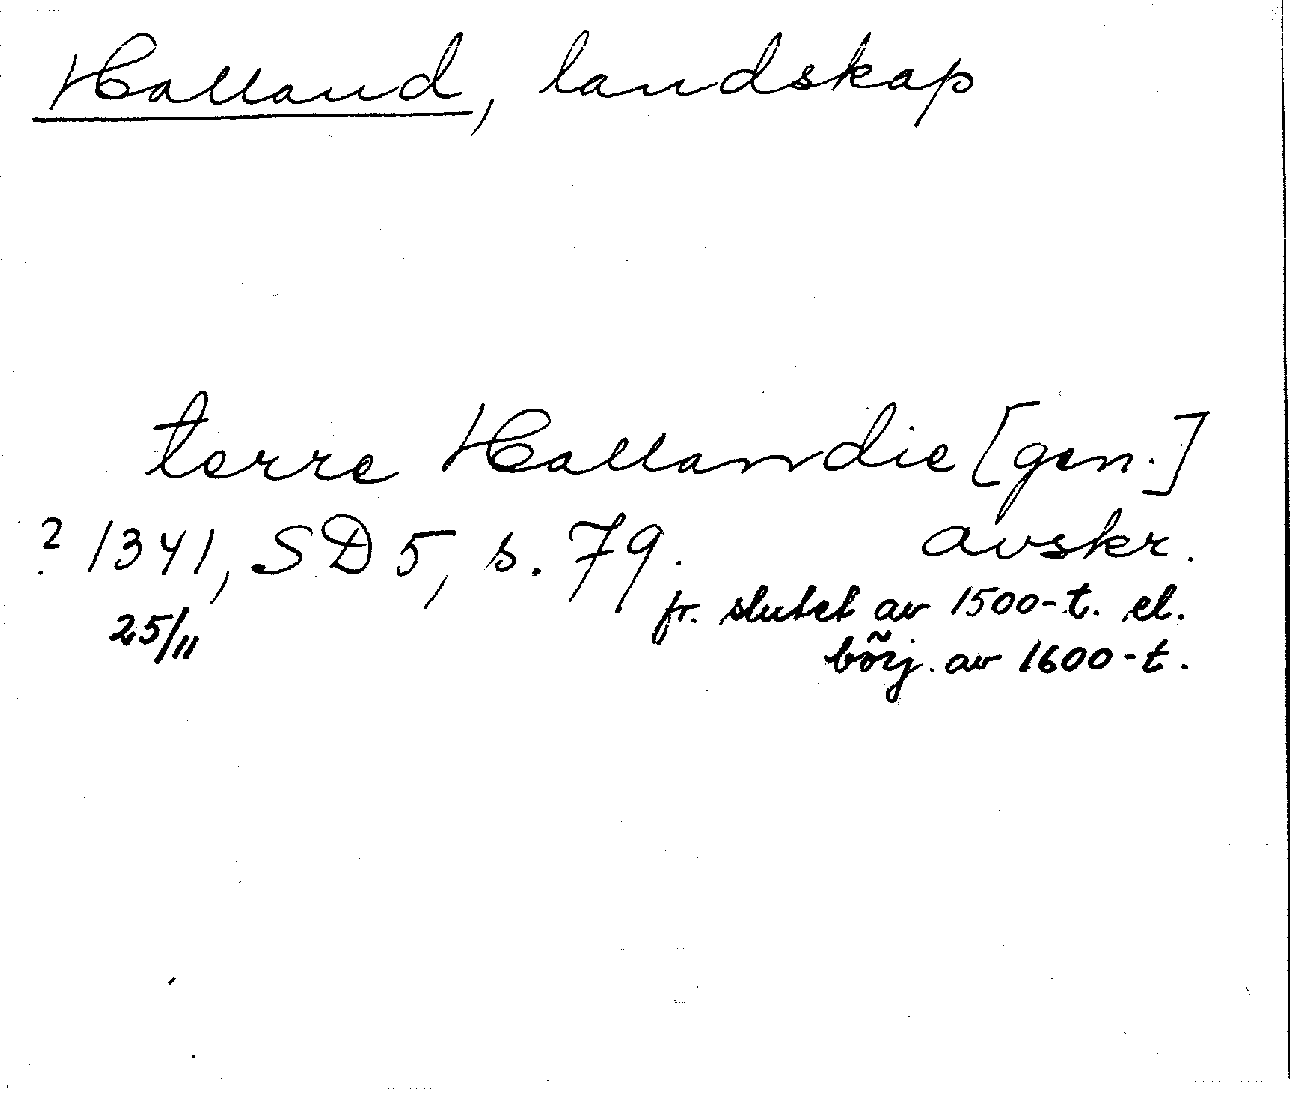 Halland, landskap
terre Hallandie [gen.]
? 1341, SD 5, s. 79. avskr.
25/11 fr. slutet av 1500-t. el.
börj. av 1600-t.